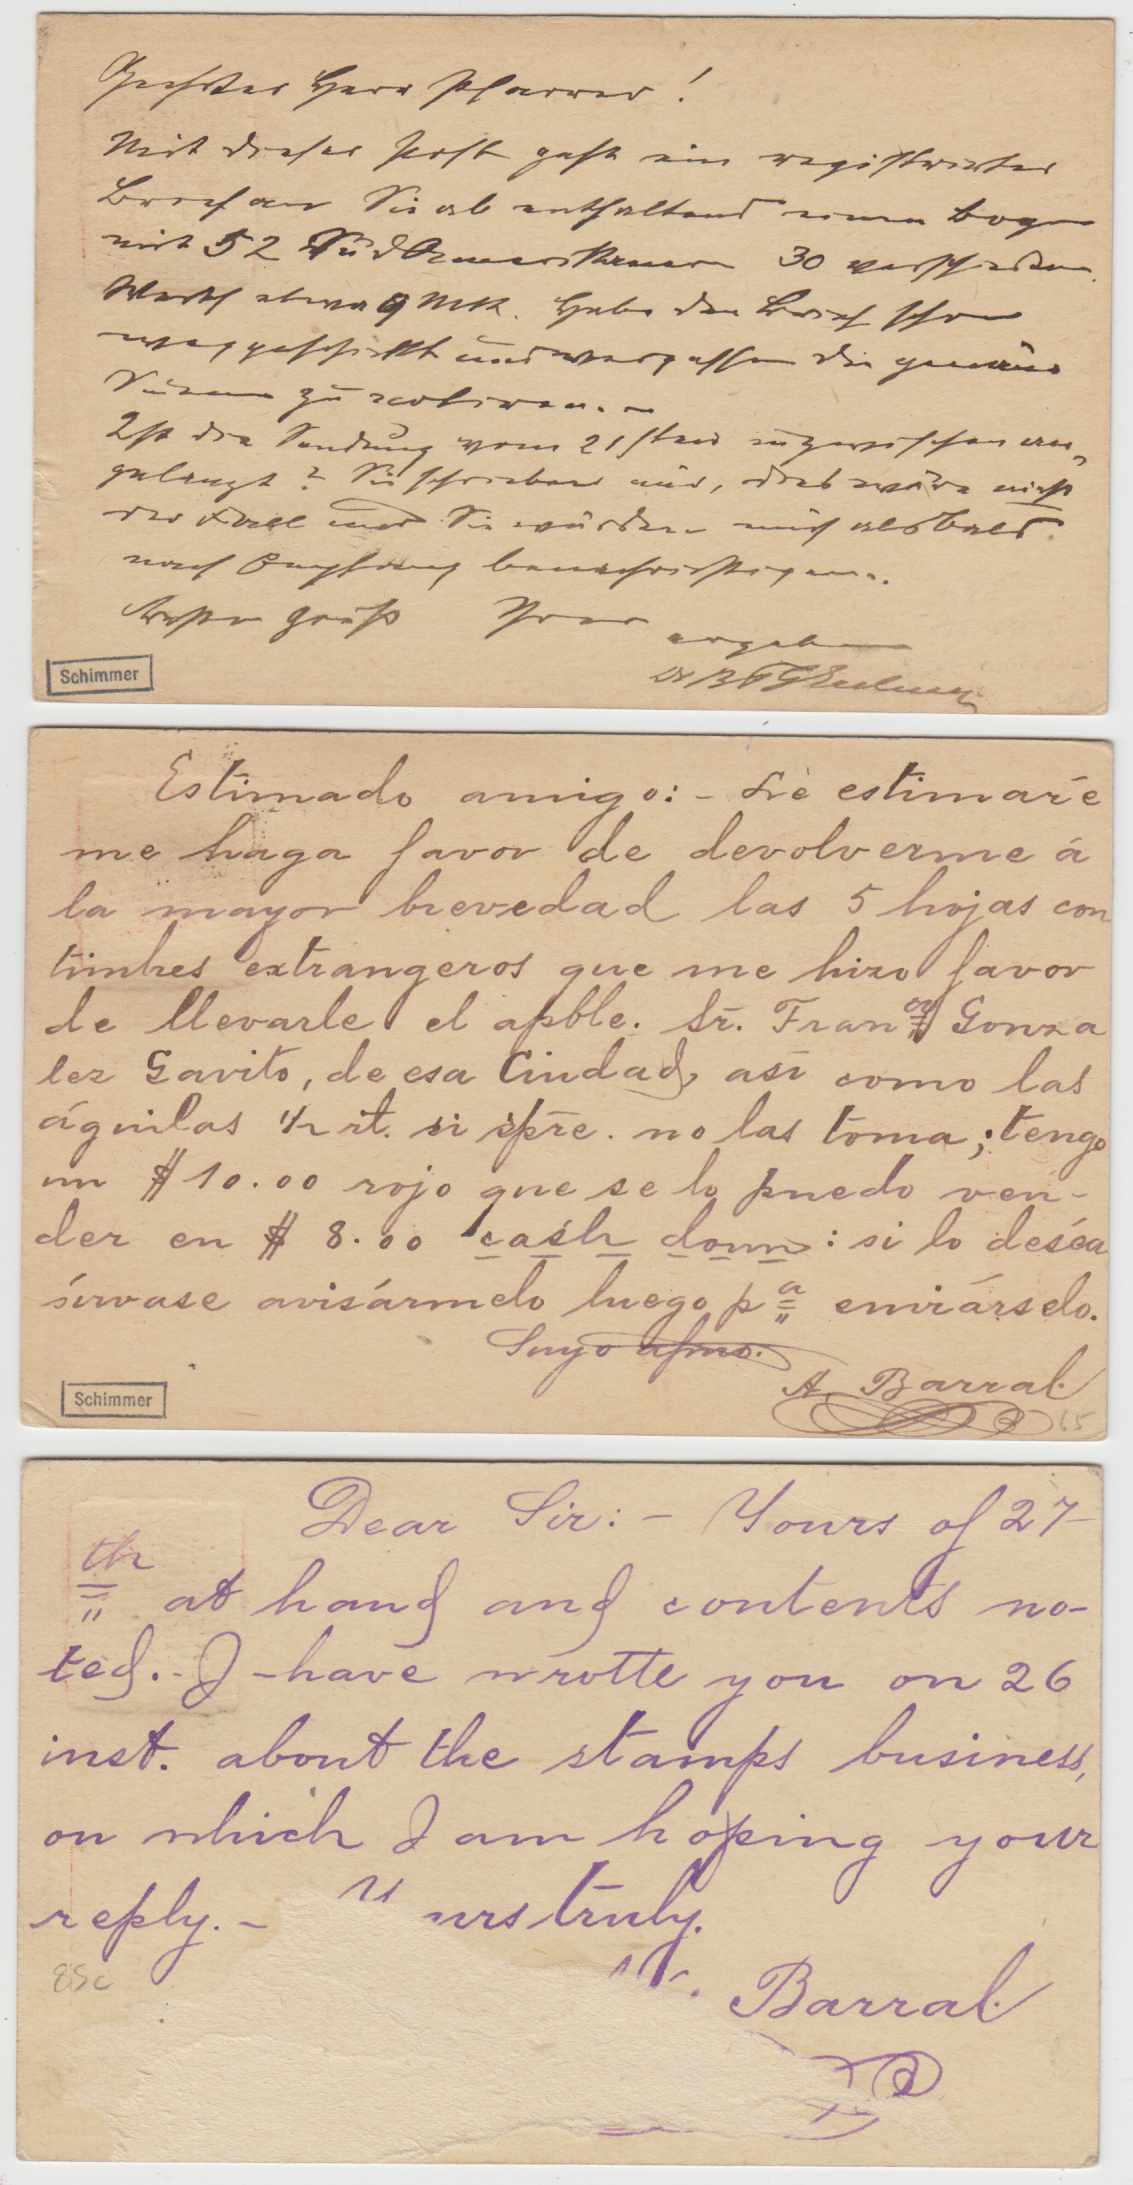 Geehrter Herr Pfarrer!
Mit dieser Post geht ein registrirter
Brief an Sie ab enthaltend einen Bogen
mit 52 Südamerikanern 30 verschiedene.
Werth etwa 9 Mk. Habe den Brief schon
weggeschickt und vergessen die genaue
Summe zu notiren.
Ist die Sendung vom 21sten inzwischen an-
gelangt? Sie schrieben mir, dies wäre nicht
der Fall und Sie würden mich alsbald
nach Empfang benachrichtigen.
Besten Gruß Ihr
ergebener
Schimmer
Estimado amigo:- Le estimaré
me haga favor de devolverme á
la mayor brevedad las 5 hojas con
timbres extrangeros que me hizo favor
de llevarle el apble. Sr. Franco Gonza
lez Gavito, de esa Ciudad, así como las
águilas ½ rl. si spre. no las toma; tengo
un $10.00 rojo que se lo puedo ven-
der en $ 8.00 cash down: si lo deséa
sírvase avisármelo luego pa enviárselo.
Suyo afmo.
A. Barral
Schimmer
65
Dear Sir:- Yours of 27
th at hand and contents no-
ted.- I have wrotte you on 26
inst. about the stamps business,
on which I am hoping your
reply.- urs truly.
Barral
85c